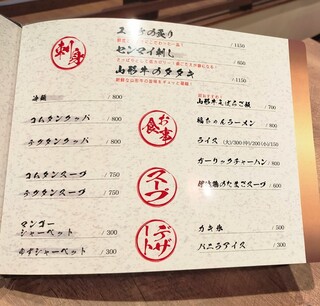 刺身
1150
センマイ刺し / 850
山形牛のタタキ / 1150
お食事
冷麺 / 800
コムタンクッパ / 800
チゲタンクッパ / 800
/ 700
ラーメン / 800
ライス (大)/300 (中)/200 (小)/150
ガーリックチャーハン / 800
スープ
コムタンスープ / 750
チゲタンスープ / 750
のたまごスープ / 600
デザート
マンゴー
シャーベット / 300
ゆずシャーベット / 300
カキ氷 / 500
バニラアイス / 300